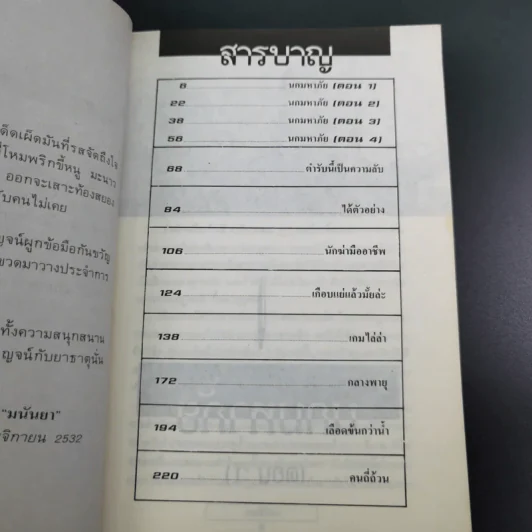 เด็ดเผ็ดมันที่รสจัดถึงใจ
โหมพริกขี้หนู มะนาว
ออกจะเสาะท้องสยอง
บคนไม่เคย
ญจน์ผูกข้อมือกันขวัญ
ขวดมาวางประจำการ
ทั้งความสนุกสนาน
ญจน์กับยาธาตุนั่น
"มนันยา"
ศจิกายน 2532
สารบาญ
8 นกมหาภัย (ตอน 1)
22 นกมหาภัย (ตอน 2)
38 นกมหาภัย (ตอน 3)
56 นกมหาภัย (ตอน 4)
68 ตำรับนี้เป็นความลับ
84 ได้ตัวอย่าง
106 นักฆ่ามืออาชีพ
124 เกือบแย่แล้วมั้ยล่ะ
138 เกมไล่ล่า
172 กลางพายุ
194 เลือดข้นกว่าน้ำ
220 คนถี่ถ้วน